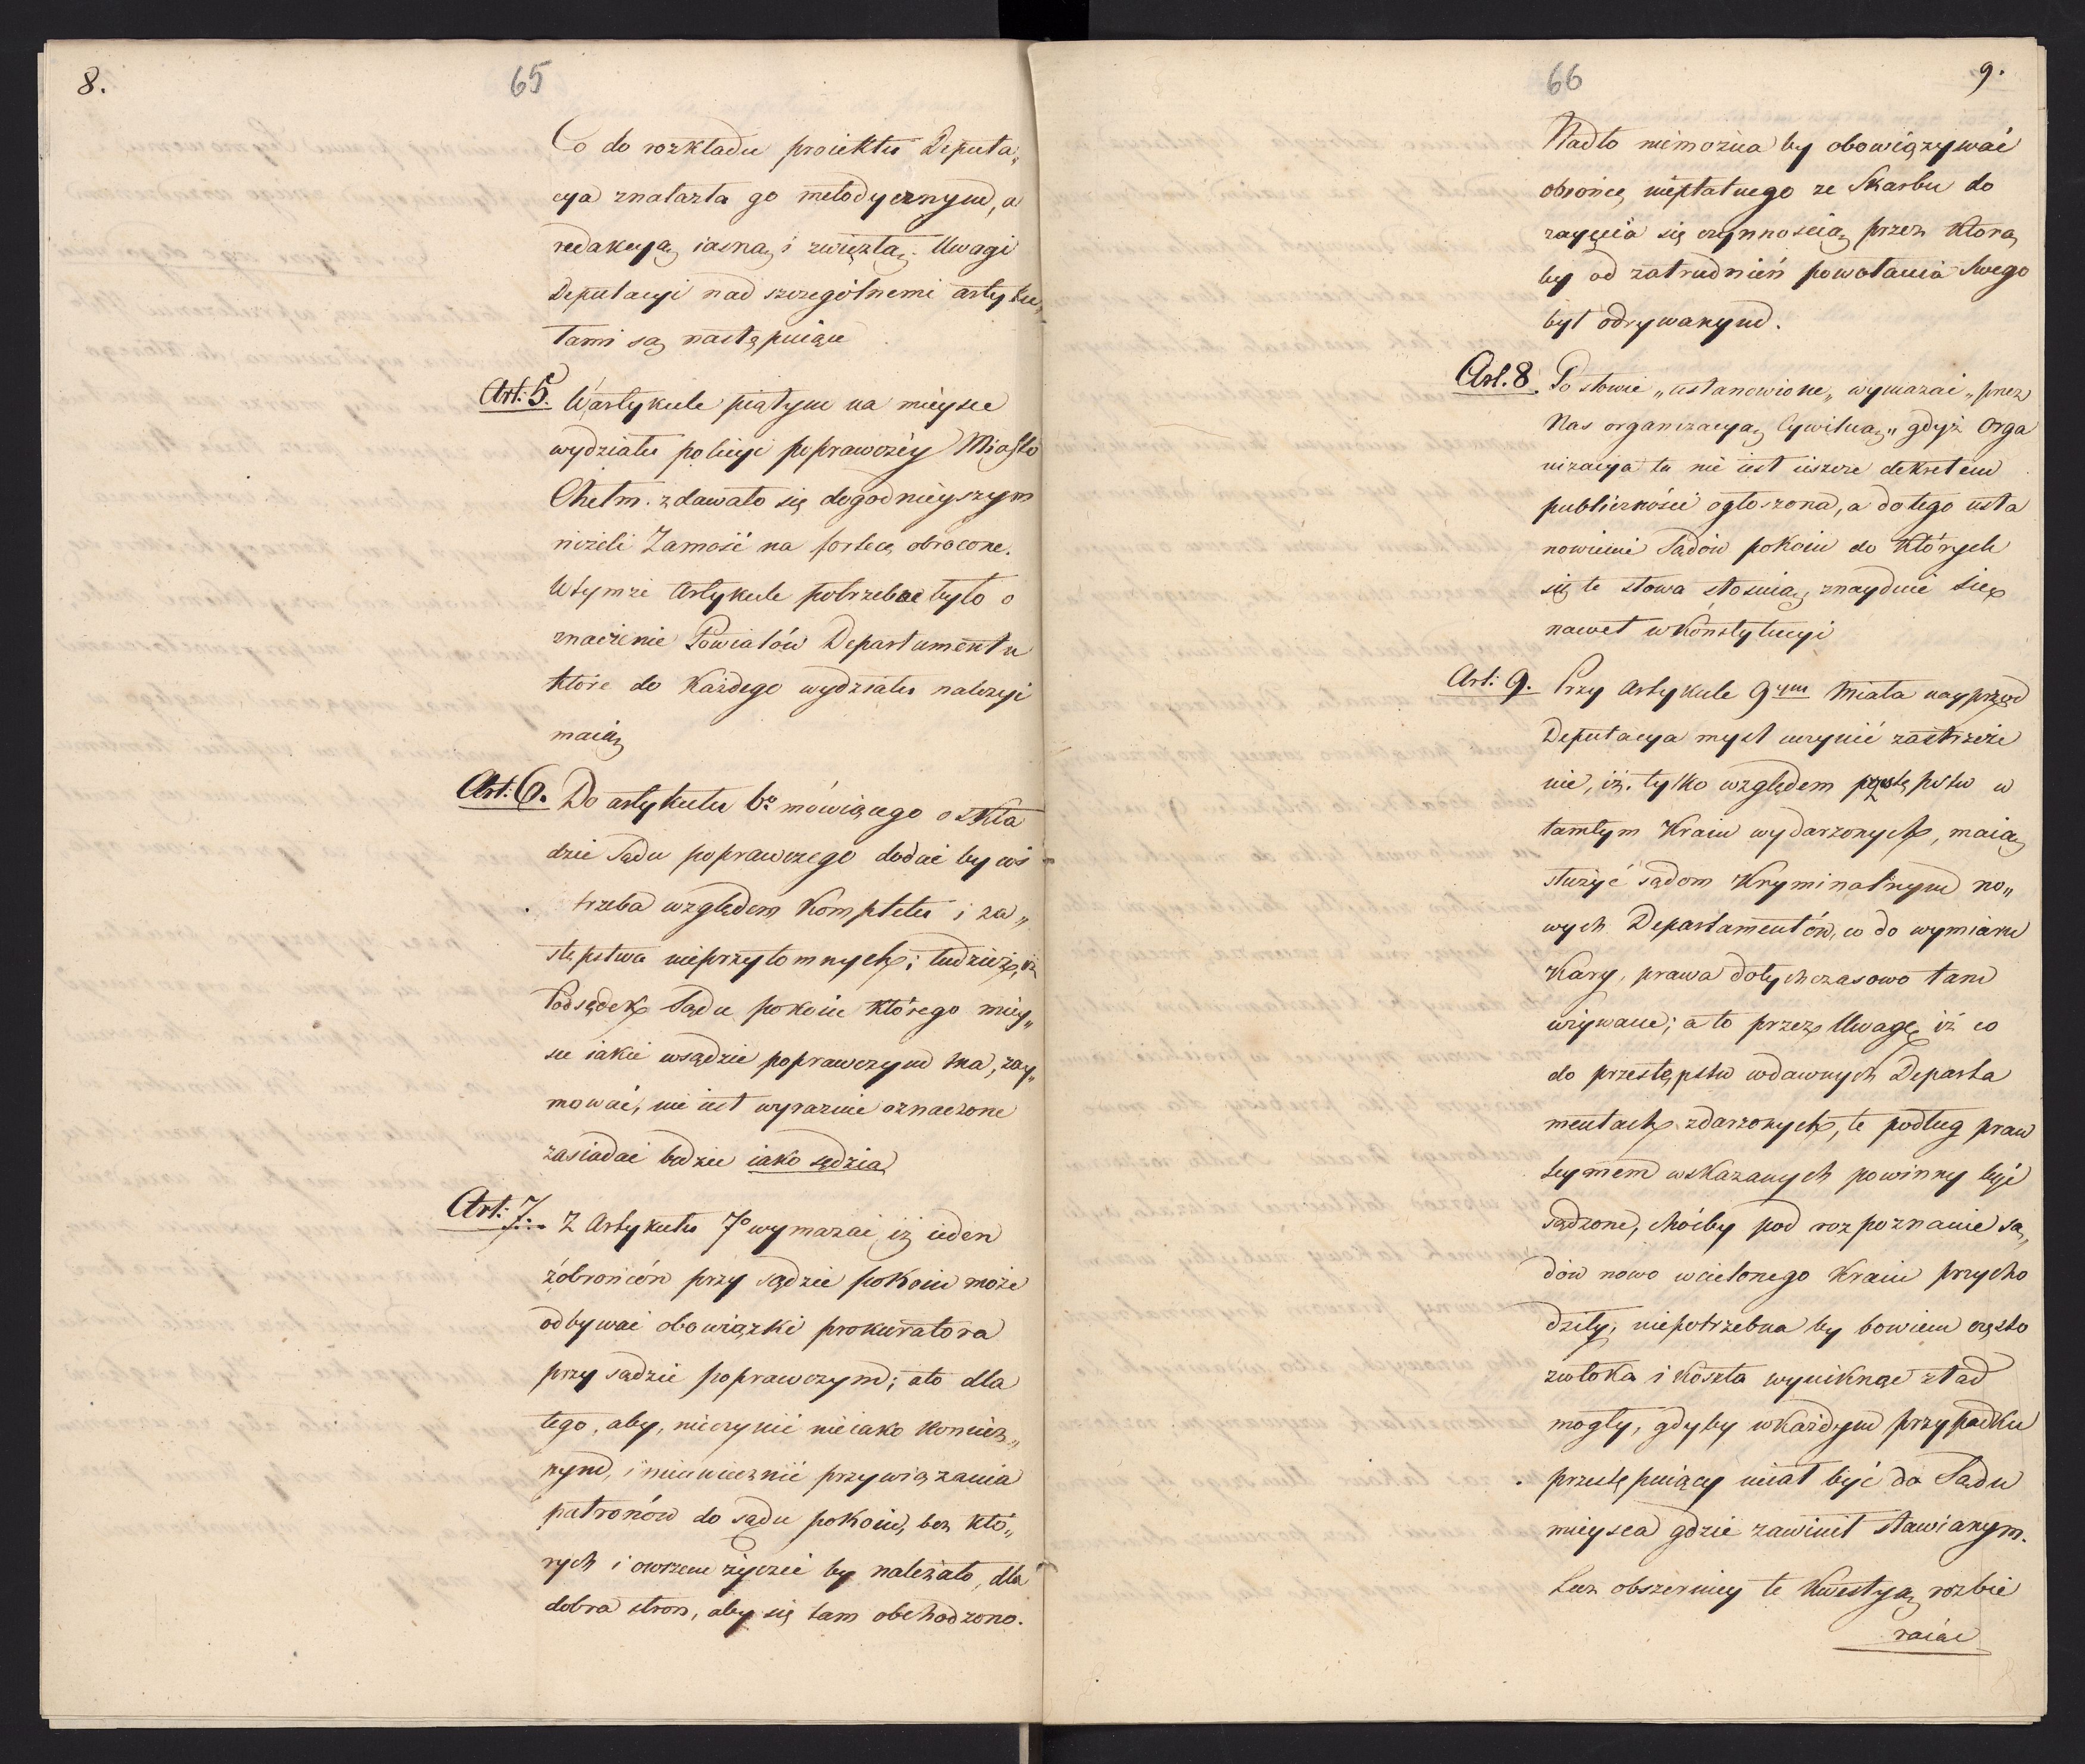 8.
65
Co do rozkładu proiektu Deputa„
cya znalazła go metodycznym, a
redakcyą iasną i zwięzłą. Uwagi
Deputacyi nad szczególnemi artyku„
łami są następuiące
Art: 5. W artykule piątym na mieysce
wydziału policyi poprawczéy Miasto
Chełm. zdawało się dogodnieyszym
niżeli Zamość na fortecę obrócone.
W tymże Artykule potrzebne było o
znaczenie Powiatów Departamentu
które do każdego wydziału należyć
maią
Art: 6. Do artykułu 6º mówiącego o skła
dzie Sądu poprawczego dodać by coś
trzeba względem Kompletu i za„
stępstwa nieprzytomnych; tudzież, iż
Podsędek Sądu pokoiu którego miey„
sce iakie w sądzie poprawczym ma, zay„
mować, nie iest wyraźnie oznaczone
zasiadać będzie iako sędzia
Art: 7. Z Artykułu 7º wymazać, iż ieden
z obrońców przy sądzie pokoiu może
odbywać obowiązki prokuratora
przy sądzie poprawczym; a to dla
tego, aby, nieczynić nieiako koniecz„
nym, i nieuwiecznić przywiązania
patronów do sądu pokoiu, bez któ„
rych i owszem życzeć by należało, dla
dobra stron, aby się tam obchodzono.
66
9.
Nadto niemożna by obowiązywać
obrońcę niepłatnego ze Skarbu do
zaięcia się czynnością, przez którą
by od zatrudnień powołania Swego
był odrywanym.
Art. 8. Po słowie „ustanowione„ wymazać „przez
Nas organizacyą Cywilną„ gdyż Orga
nizacya ta nie iest ieszcze dekretem
publiczności ogłoszona, a do tego usta
nowienie Sądów pokoiu do których
się te słowa stosuią, znayduie się
nawet w Konstytucyi
Art: 9. Przy Artykule 9ym miała nayprzód
Deputacya myśl uczynić zastrzeże
nie, iż tylko względem przestępstw w
tamtym Kraiu wydarzonych, maią
służyć sądom Kryminalnym no„
wych Departamentów, co do wymiaru
Kary, prawa dotychczasowo tam
używane; a to przez Uwagę iż co
do przestępstw w dawnych Departa
mentach zdarzonych, te podług praw
seymem wskazanych powinny być
sądzone, chóćby pod rozpoznanie są„
dów nowo wcielonego Kraiu przycho
dziły; niepotrzebna by bowiem często
zwłoka i koszta wyniknąć ztąd
mogły, gdyby w każdym przypadku
przestępuiący miał być do Sądu
mieysca gdzie zawinił stawianym.
Lecz obszerniey te kwestyą rozbie
raiąc